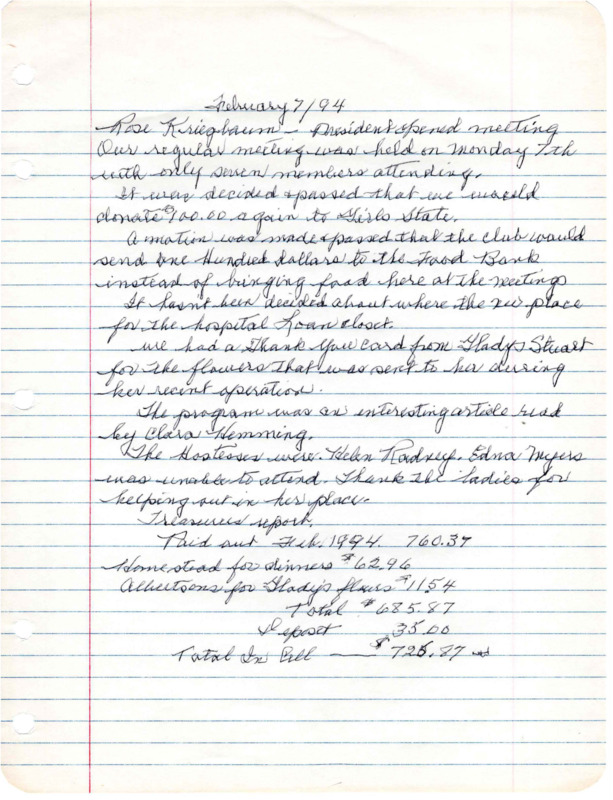 February 7/94
Rose Kriegbaum - President opened meeting
Our regular meeting was held on Monday 7th
with only seven members attending.
It was decided & passed that we would
donate $100.00 again to Girls State.
A motion was made & passed that the club would
send One Hundred dollars to the Food Bank
instead of bringing food here at the meetings
It hasn't been decided about where the new place
for the hospital Loan closet.
we had a Thank You card from Gladys Stuart
for the flowers that was sent to her durring
her recint operation.
The program was an interesting article read
by Clara Hemming.
The Hostesses were. Helen Radney. Edna Myers
was unable to attend. Thank the ladies for
helping out in her place.
Treasures report.
Paid out Feb. 1994. 760.37
Homestead for dinners $62.96
Albertsons for Gladys flours $11.54
Total $685.87
Deposet 35.00
Total In Bill — $725.87